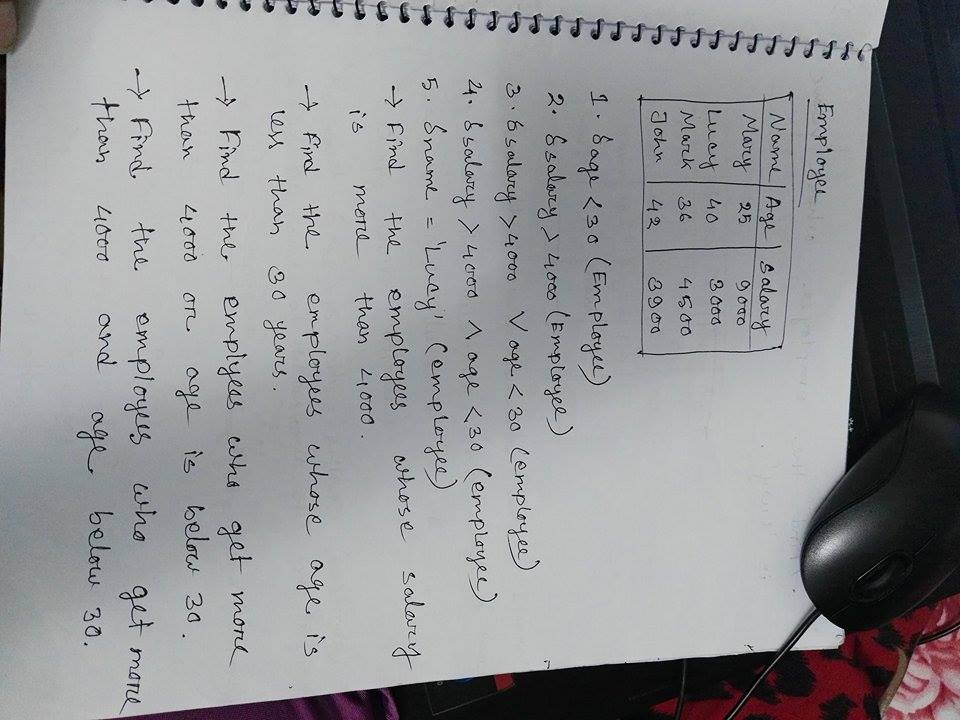 Employee
Name Age Salary
Mary 25 9000
Lucy 40 3000
Mark 36 4500
John 42 3900
1. σage <30 (Employee)
2. σsalary >4000 (Employee)
3. σsalary >4000 ∨ age <30 (employee)
4. σsalary >4000 ∧ age <30 (employee)
5. σname = 'Lucy' (employee)
→ Find the employees whose salary
is more than 4000.
→ Find the employees whose age is
less than 30 years.
→ Find the emplyees who get more
than 4000 or age is below 30.
→ Find the employees who get more
than 4000 and age below 30.